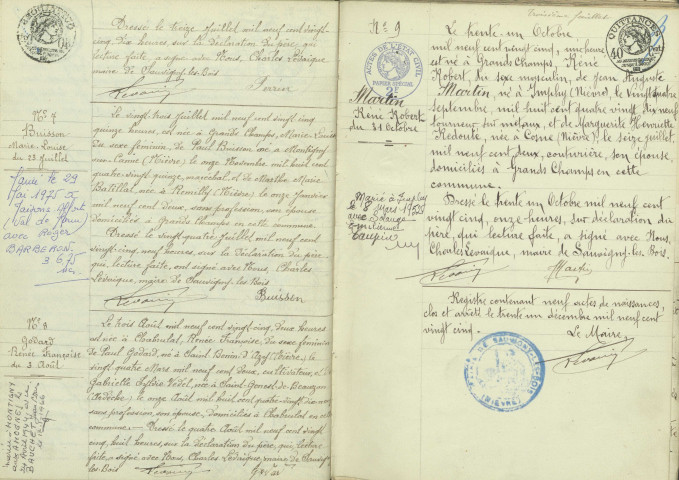 Dressé le treize Juillet mil neuf cent vingt-
cinq dix heures, sur la déclaration du père, qui
lecture faite, a signé avec Nous, Charles Lévaique
maire de Sauvigny-les-Bois
Perrin
N° 7
Buisson
Marie-Louise
du 23 Juillet
Marié le 29
Mai 1975 à
avec Roger
BARBEROT
3.6.75
Le vingt trois Juillet mil neuf cent vingt cinq
quinze heures, est née à Grands Champs, Marie-Louise
du sexe féminin, de Paul Buisson, né à Montigny
sur-Canne (Nièvre), le onze Novembre mil huit cent
quatre vingt quinze, maréchal, et de Marthe Marie
Batillat, née à Remilly (Nièvre), le onze Janvier
mil neuf cent deux, sans profession, son épouse
domiciliés à Grands Champs en cette commune.
Dressé le vingt-quatre Juillet mil neuf cent
vingt-cinq, neuf heures, sur la déclaration du père
qui, lecture faite, ont signé avec Nous, Charles
Lévaique, maire de Sauvigny-les-Bois
Buisson
N° 8
Godard
Renée Françoise
du 3 Août
Le trois Août mil neuf cent vingt cinq, deux heures
est née à Chabnulat, Renée Françoise, du sexe féminin
de Paul Godard, né à Saint Benin d'Azy (Nièvre), le
vingt quatre Mars mil neuf cent deux, cultivateur, et de
Gabrielle Lydie Védel, née à Saint-Genest-de-Beauzon
(Ardèche), le onze Août mil huit cent quatre-vingt dix-neuf
sans profession, son épouse, domiciliés à Chabnulat en cette
commune. Dressé le quatre Août mil neuf cent vingt
cinq, huit heures, sur la déclaration du père, qui, lecture
faite, a signé avec Nous, Charles Lévaique, maire de Sauvigny
les-Bois
Troisième feuillet
N° 9
ACTES DE L'ÉTAT CIVIL
PAPIER SPÉCIAL
2F
QUITTANCES
40
Martin
René Robert
du 31 Octobre
Marié à Imphy
le 8 Mars 1952
avec Solange
Le trente-un Octobre
mil neuf cent vingt cinq, une heure
est né à Grands Champs, René
Robert, du sexe masculin, de Jean Auguste
Martin, né à Imphy (Nièvre), le vingt quatre
septembre, mil huit cent quatre vingt dix neuf
tourneur sur métaux, et de Marguerite Henriette
Redouté, née à Cosne (Nièvre), le seize juillet,
mil neuf cent deux, couturière, son épouse,
domiciliés à Grands Champs en cette
commune.
Dressé le trente un Octobre mil neuf cent
vingt cinq, onze heures, sur déclaration du
père, qui, lecture faite, a signé avec Nous,
Charles Lévaique, maire de Sauvigny-les-Bois.
Martin
Registre contenant neuf actes de naissances,
clos et arrêté le trente un décembre mil neuf cent
vingt cinq.
Le Maire,
MAIRIE DE SAUVIGNY-LES-BOIS
(NIÈVRE)